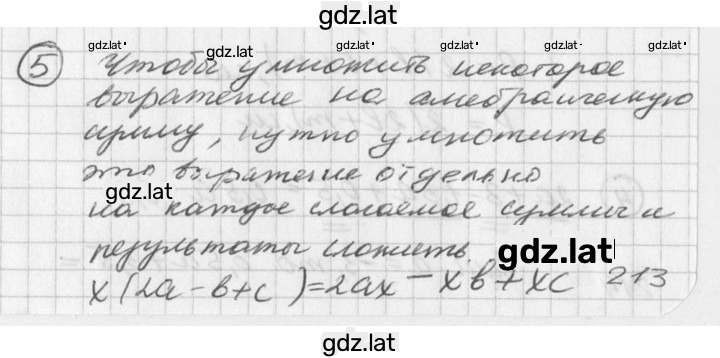 gdz.lat
gdz.lat gdz.lat gdz.lat gdz.lat gdz.lat
5 Чтобы умножить некоторое
выражение на алгебраическую
сумму, нужно умножить
это выражение отдельно
gdz.lat
на каждое слагаемое суммы и
результаты сложить.
gdz.lat
x(2a-в+c)=2ax-xв+xc 213
gdz.lat
gdz.lat